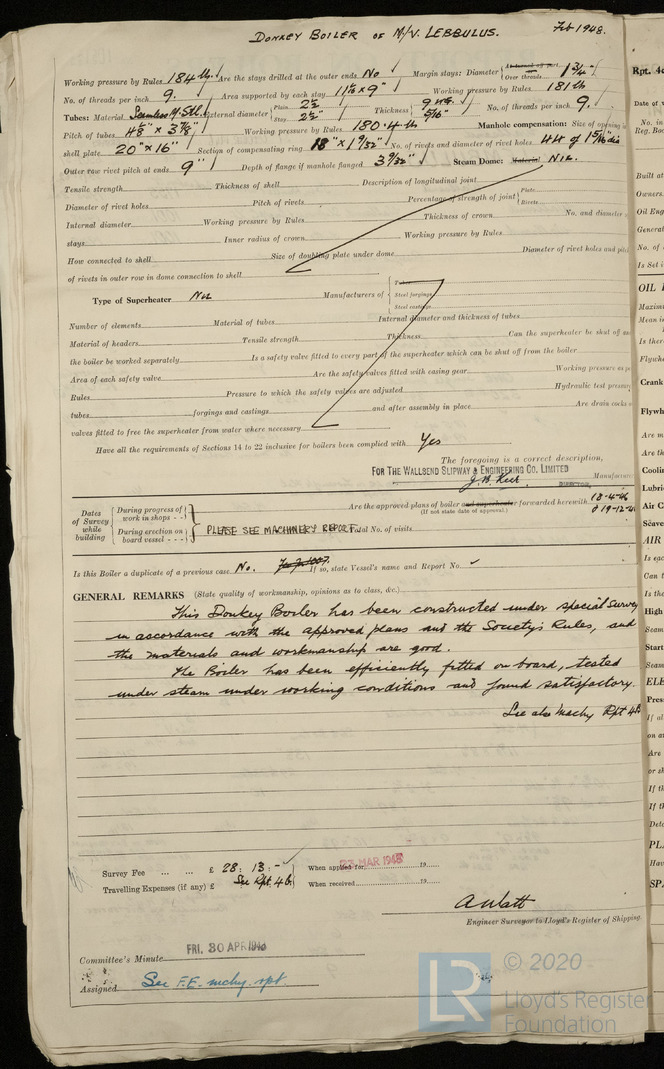 DONKEY BOILER OF M/V. LEBBULUS. Feb 1948.
Working pressure by Rules 184 lb. Are the stays drilled at the outer ends No Margin stays: Diameter { At turned off part, Over threads 1 3/4"
No. of threads per inch 9. Area supported by each stay × 9" Working pressure by Rules 181 lb
Tubes: Material Seamless M. Stl. External diameter { Plain 2 1/2" Stay 2 1/2" Thickness { 9 W.G. 5/16" No. of threads per inch 9.
Pitch of tubes × 3 7/8" Working pressure by Rules 180.4 lb Manhole compensation: Size of opening in
shell plate 20" × 16" Section of compensating ring × 1 9/32" No. of rivets and diameter of rivet holes 44 of 1 5/16" dia
Outer row rivet pitch at ends 9" Depth of flange if manhole flanged 3 9/32" Steam Dome: Material Nil.
Tensile strength Thickness of shell Description of longitudinal joint
Diameter of rivet holes Pitch of rivets Percentage of strength of joint { Plate Rivets
Internal diameter Working pressure by Rules Thickness of crown No. and diameter of
stays Inner radius of crown Working pressure by Rules
How connected to shell Size of doubling plate under dome Diameter of rivet holes and pitch
of rivets in outer row in dome connection to shell
Type of Superheater Nil Manufacturers of { Tubes Steel forgings Steel castings
Number of elements Material of tubes Internal diameter and thickness of tubes
Material of headers Tensile strength Thickness Can the superheater be shut off and
the boiler be worked separately Is a safety valve fitted to every part of the superheater which can be shut off from the boiler
Area of each safety valve Are the safety valves fitted with easing gear Working pressure as per
Rules Pressure to which the safety valves are adjusted Hydraulic test pressure
tubes forgings and castings and after assembly in place Are drain cocks or
valves fitted to free the superheater from water where necessary
Have all the requirements of Sections 14 to 22 inclusive for boilers been complied with Yes
The foregoing is a correct description,
FOR THE WALLSEND SLIPWAY & ENGINEERING CO. LIMITED
Manufacturer
DIRECTOR.
Dates of Survey while building { During progress of work in shops - - } { During erection on board vessel - - - } PLEASE SEE MACHINERY REPORT. Are the approved plans of boiler and superheater forwarded herewith 18-4-46
(If not state date of approval.) & 19-12-4
Total No. of visits
Is this Boiler a duplicate of a previous case No. If so, state Vessel's name and Report No.
GENERAL REMARKS (State quality of workmanship, opinions as to class, &c.)
This Donkey Boiler has been constructed under special Survey
in accordance with the approved plans and the Society's Rules, and
the materials and workmanship are good.
The Boiler has been efficiently fitted on board, tested
under steam under working conditions and found satisfactory.
See also Machy Rpt 4b
Survey Fee ... ... £ 28 : 13 : - When applied for 23 MAR 1948 19
Travelling Expenses (if any) £ See Rpt. 4b. When received 19
A Watt
Engineer Surveyor to Lloyd's Register of Shipping.
Committee's Minute FRI. 30 APR 1948
Assigned See F.E. mchy. rpt.
© 2020
Lloyd's Register
Foundation
LR
Rpt. 4c
Date of
No. in
Reg. Boo
Built at
Owners
Oil Eng
General
No. of
Is Set i
OIL
Maxim
Mean i
Is ther
Flywhe
Crank
Flywh
Are m
Are th
Coolin
Lubric
Air C
Scave
AIR
Is eac
Can t
Is the
High
Seam
Start
Seam
ELE
Pres
If al
on a
Are
or s
If th
If th
Deta
PLA
Hav
SPA